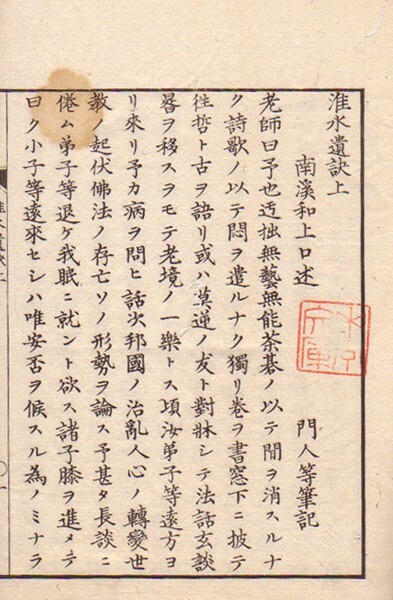 淮水遺訣上
南溪和上口述　門人等筆記
老師曰予也迂拙無藝無能茶碁ノ以テ閒ヲ消スルナ
ク詩歌ノ以テ悶ヲ遣ルナク獨リ卷ヲ書窓下ニ披テ
徃哲ト古ヲ語リ或ハ莫逆ノ友ト對牀シテ法話玄談
晷ヲ移スヲモテ老境ノ一樂トス頃汝弟子等遠方ヨ
リ來リ予カ病ヲ問ヒ話次邦國ノ治亂人心ノ轉變世
教ノ起伏佛法ノ存亡ソノ形勢ヲ論ス予甚タ長談ニ
倦ム弟子等退ケ我眠ニ就ント欲ス諸子膝ヲ進メテ
曰ク小子等遠來セシハ唯安否ヲ候スル為ノミナラ